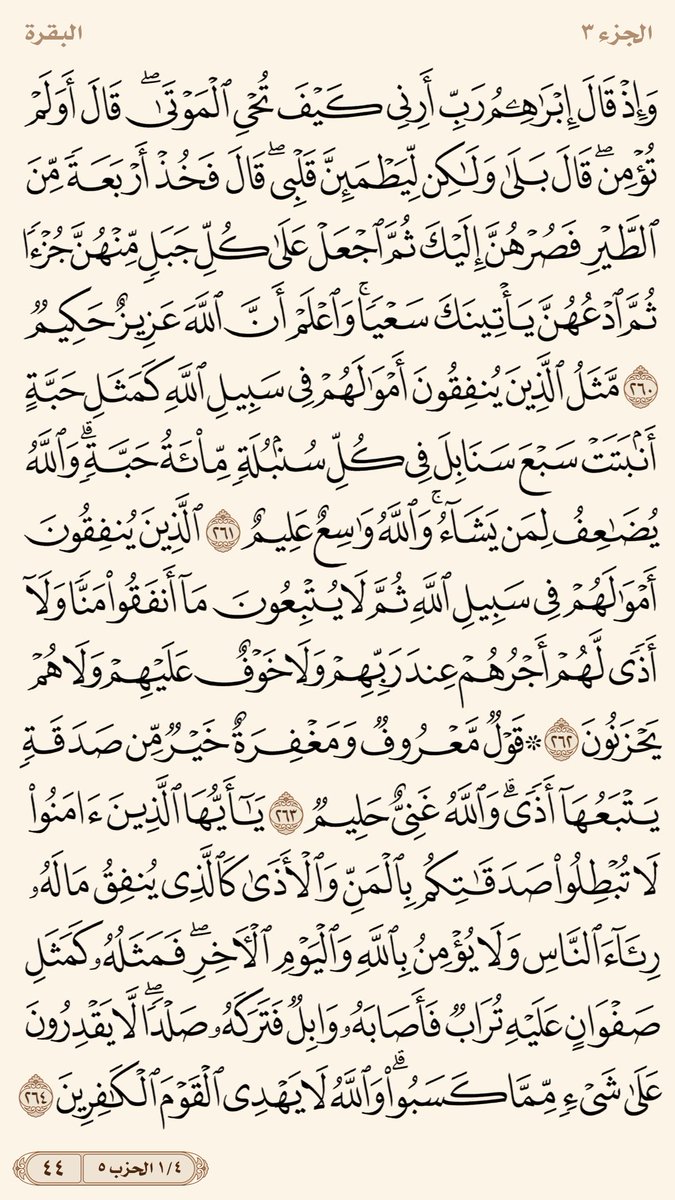 الجزء ٣
البقرة
وَإِذۡ قَالَ إِبۡرَٰهِـۧمُ رَبِّ أَرِنِي كَيۡفَ تُحۡيِ ٱلۡمَوۡتَىٰۖ قَالَ أَوَلَمۡ
تُؤۡمِنۖ قَالَ بَلَىٰ وَلَٰكِن لِّيَطۡمَئِنَّ قَلۡبِيۖ قَالَ فَخُذۡ أَرۡبَعَةٗ مِّنَ
ٱلطَّيۡرِ فَصُرۡهُنَّ إِلَيۡكَ ثُمَّ ٱجۡعَلۡ عَلَىٰ كُلِّ جَبَلٖ مِّنۡهُنَّ جُزۡءٗا
ثُمَّ ٱدۡعُهُنَّ يَأۡتِينَكَ سَعۡيٗاۚ وَٱعۡلَمۡ أَنَّ ٱللَّهَ عَزِيزٌ حَكِيمٞ
٢٦٠ مَّثَلُ ٱلَّذِينَ يُنفِقُونَ أَمۡوَٰلَهُمۡ فِي سَبِيلِ ٱللَّهِ كَمَثَلِ حَبَّةٍ
أَنۢبَتَتۡ سَبۡعَ سَنَابِلَ فِي كُلِّ سُنۢبُلَةٖ مِّاْئَةُ حَبَّةٖۗ وَٱللَّهُ
يُضَٰعِفُ لِمَن يَشَآءُۚ وَٱللَّهُ وَٰسِعٌ عَلِيمٌ ٢٦١ ٱلَّذِينَ يُنفِقُونَ
أَمۡوَٰلَهُمۡ فِي سَبِيلِ ٱللَّهِ ثُمَّ لَا يُتۡبِعُونَ مَآ أَنفَقُواْ مَنّٗا وَلَآ
أَذٗى لَّهُمۡ أَجۡرُهُمۡ عِندَ رَبِّهِمۡ وَلَا خَوۡفٌ عَلَيۡهِمۡ وَلَا هُمۡ
يَحۡزَنُونَ ٢٦٢ ۞ قَوۡلٞ مَّعۡرُوفٞ وَمَغۡفِرَةٌ خَيۡرٞ مِّن صَدَقَةٖ
يَتۡبَعُهَآ أَذٗىۗ وَٱللَّهُ غَنِيٌّ حَلِيمٞ ٢٦٣ يَٰٓأَيُّهَا ٱلَّذِينَ ءَامَنُواْ
لَا تُبۡطِلُواْ صَدَقَٰتِكُم بِٱلۡمَنِّ وَٱلۡأَذَىٰ كَٱلَّذِي يُنفِقُ مَالَهُۥ
رِئَآءَ ٱلنَّاسِ وَلَا يُؤۡمِنُ بِٱللَّهِ وَٱلۡيَوۡمِ ٱلۡأٓخِرِۖ فَمَثَلُهُۥ كَمَثَلِ
صَفۡوَانٍ عَلَيۡهِ تُرَابٞ فَأَصَابَهُۥ وَابِلٞ فَتَرَكَهُۥ صَلۡدٗاۖ لَّا يَقۡدِرُونَ
عَلَىٰ شَيۡءٖ مِّمَّا كَسَبُواْۗ وَٱللَّهُ لَا يَهۡدِي ٱلۡقَوۡمَ ٱلۡكَٰفِرِينَ ٢٦٤
١/٤ الحزب ٥
٤٤